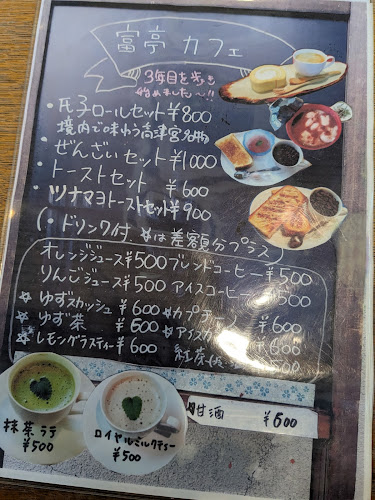 富亭 カフェ
3年目を歩き
始めました〜!!
・氏子ロールセット ¥800
境内で味わう高津宮名物
・ぜんざいセット ¥1000
・トーストセット ¥600
・ツナマヨトーストセット ¥900
(・ドリンク付 ☆は差額分プラス)
オレンジジュース ¥500 ブレンドコーヒー ¥500
りんごジュース ¥500 アイスコーヒー ¥500
☆ゆずスカッシュ ¥600 ☆カプチーノ ¥600
☆ゆず茶 ¥600 ☆アイスカ ¥600
☆レモングラスティー ¥600 紅茶
抹茶ラテ
¥500
ロイヤルミルクティー
¥500
甘酒 ¥600